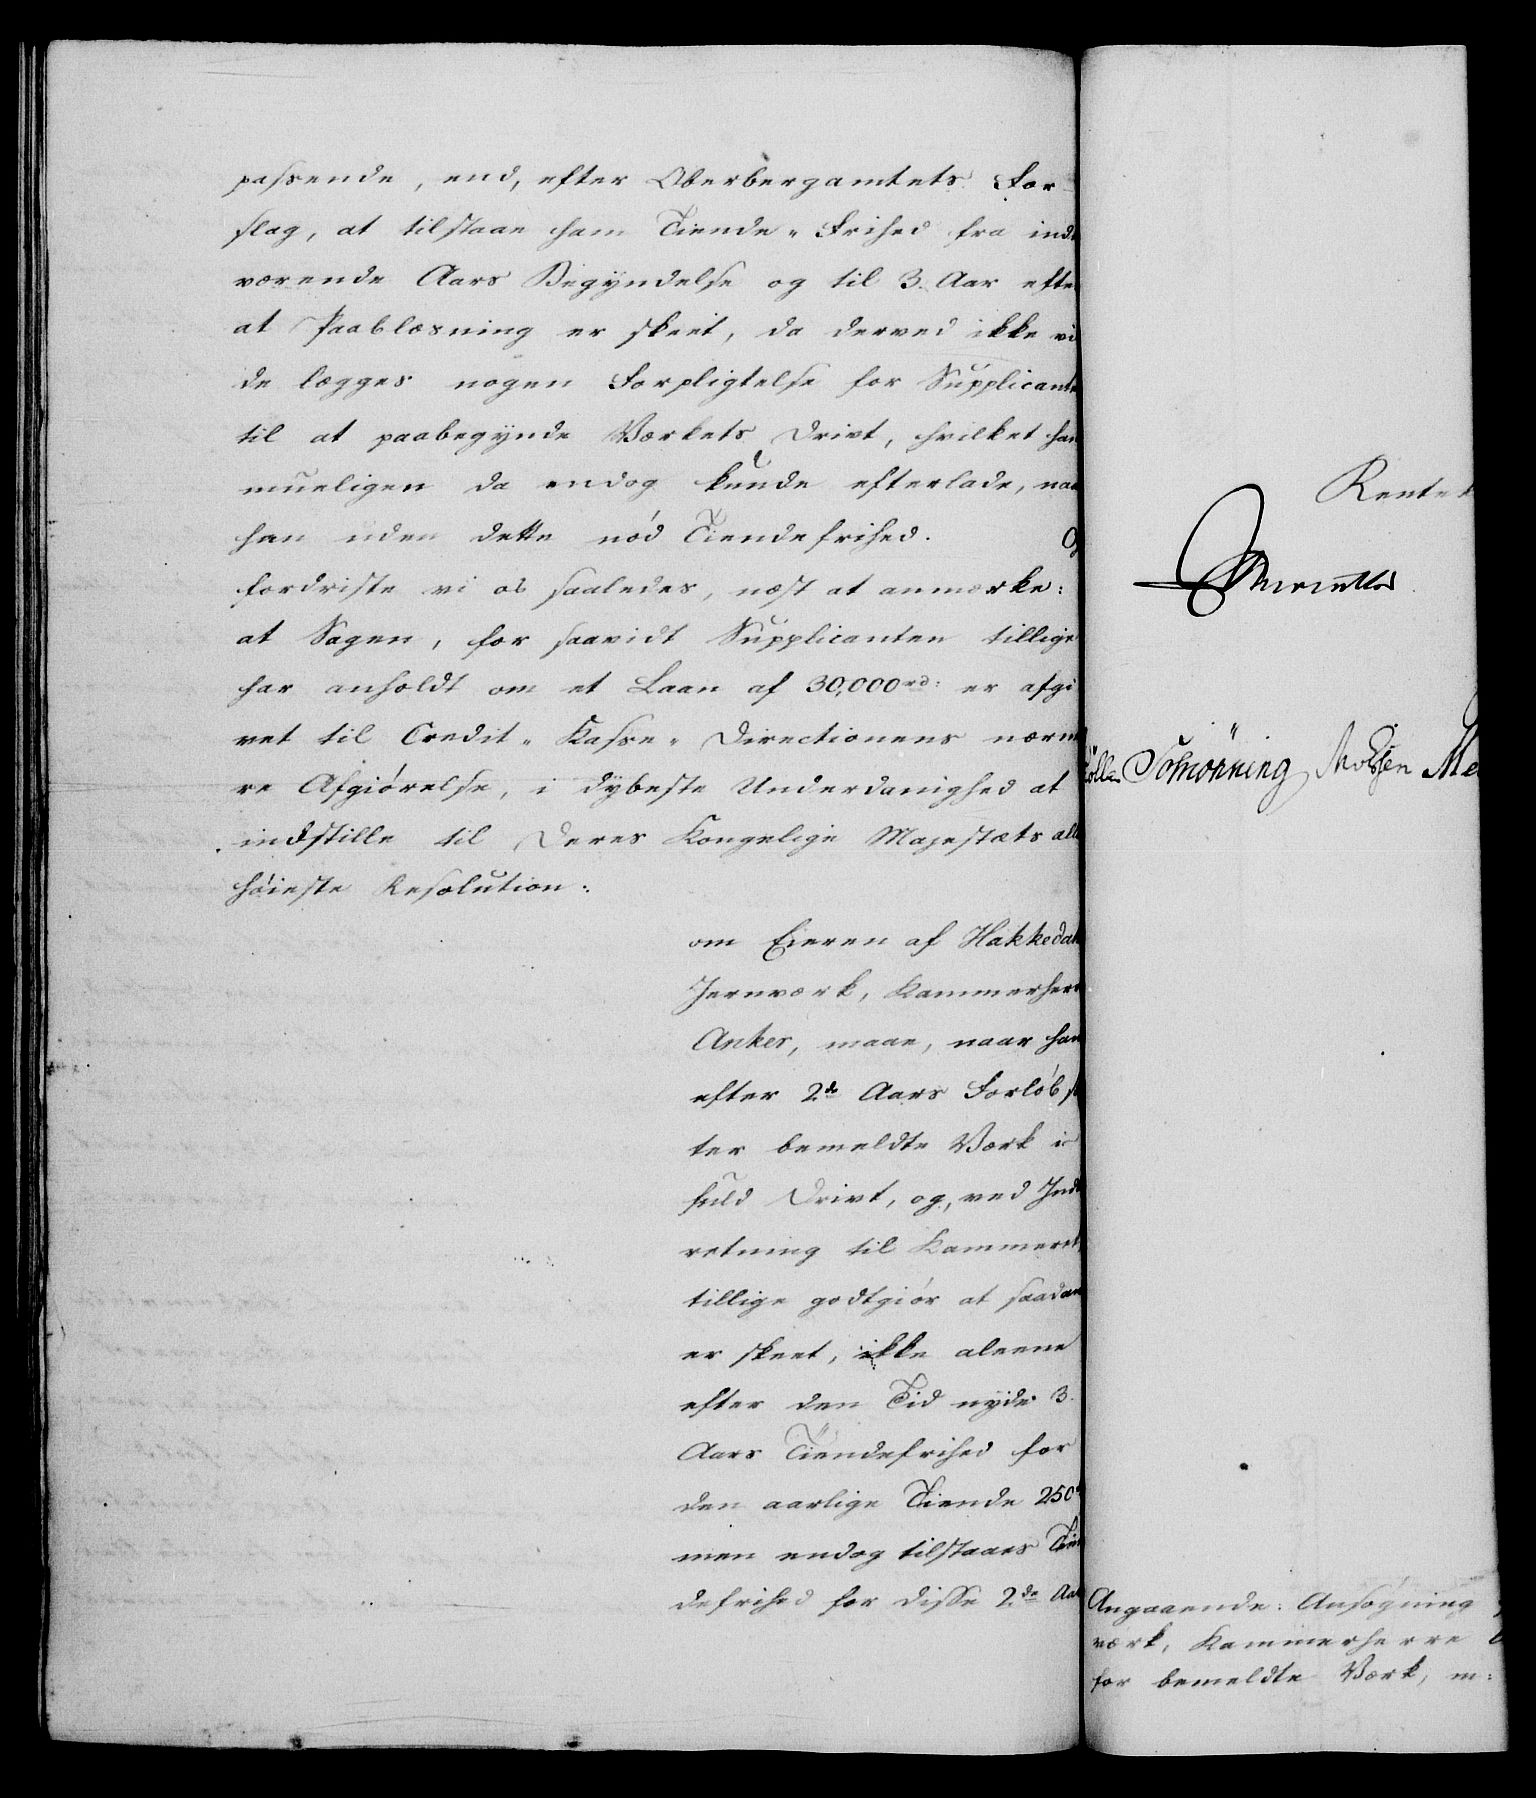 passende, end, efter Oberbergamtets For-
slag, at tilstaae ham Tiende-Frihed fra ind
værende Aars Begyndelse og til 3. Aar efte
at Paablæsning er skeet, da derved ikke vi
de lægges nogen Forpligtelse for Supplicante
til at paabegynde Værkets Drivt, hvilket han
mueligen da endog kunde efterlade, naa
han uden dette nød Tiendefrihed. Og
fordriste vi os saaledes, næst at anmærke:
at Sagen, for saavidt Supplicanten tillige
har anholdt om et Laan af 30,000 rd: er afgi
vet til Credit-Kasse-Directionens nærm
re Afgiørelse, i dybeste Underdanighed at
indstille til Deres Kongelige Majestæts all
høieste Resolution:
om Eieren af Hakkedals
Jernværk, Kammerherr
Anker, maae, naar han
efter 2de Aars Forløb s
ter bemeldte Værk i
fuld Drivt, og, ved Ind
retning til Kammeret,
tillige godtgiør at saadan
er skeet, ikke aleene
efter den Tid nyde 3.
Aars Tiendefrihed for
den aarlige Tiende 250
men endog tilstaaes Tien
defrihed for disse 2de Aar
Rentek
Schönning Me
Angaaende: Ansøgning
værk, Kammerherre
for bemeldte Værk, m: